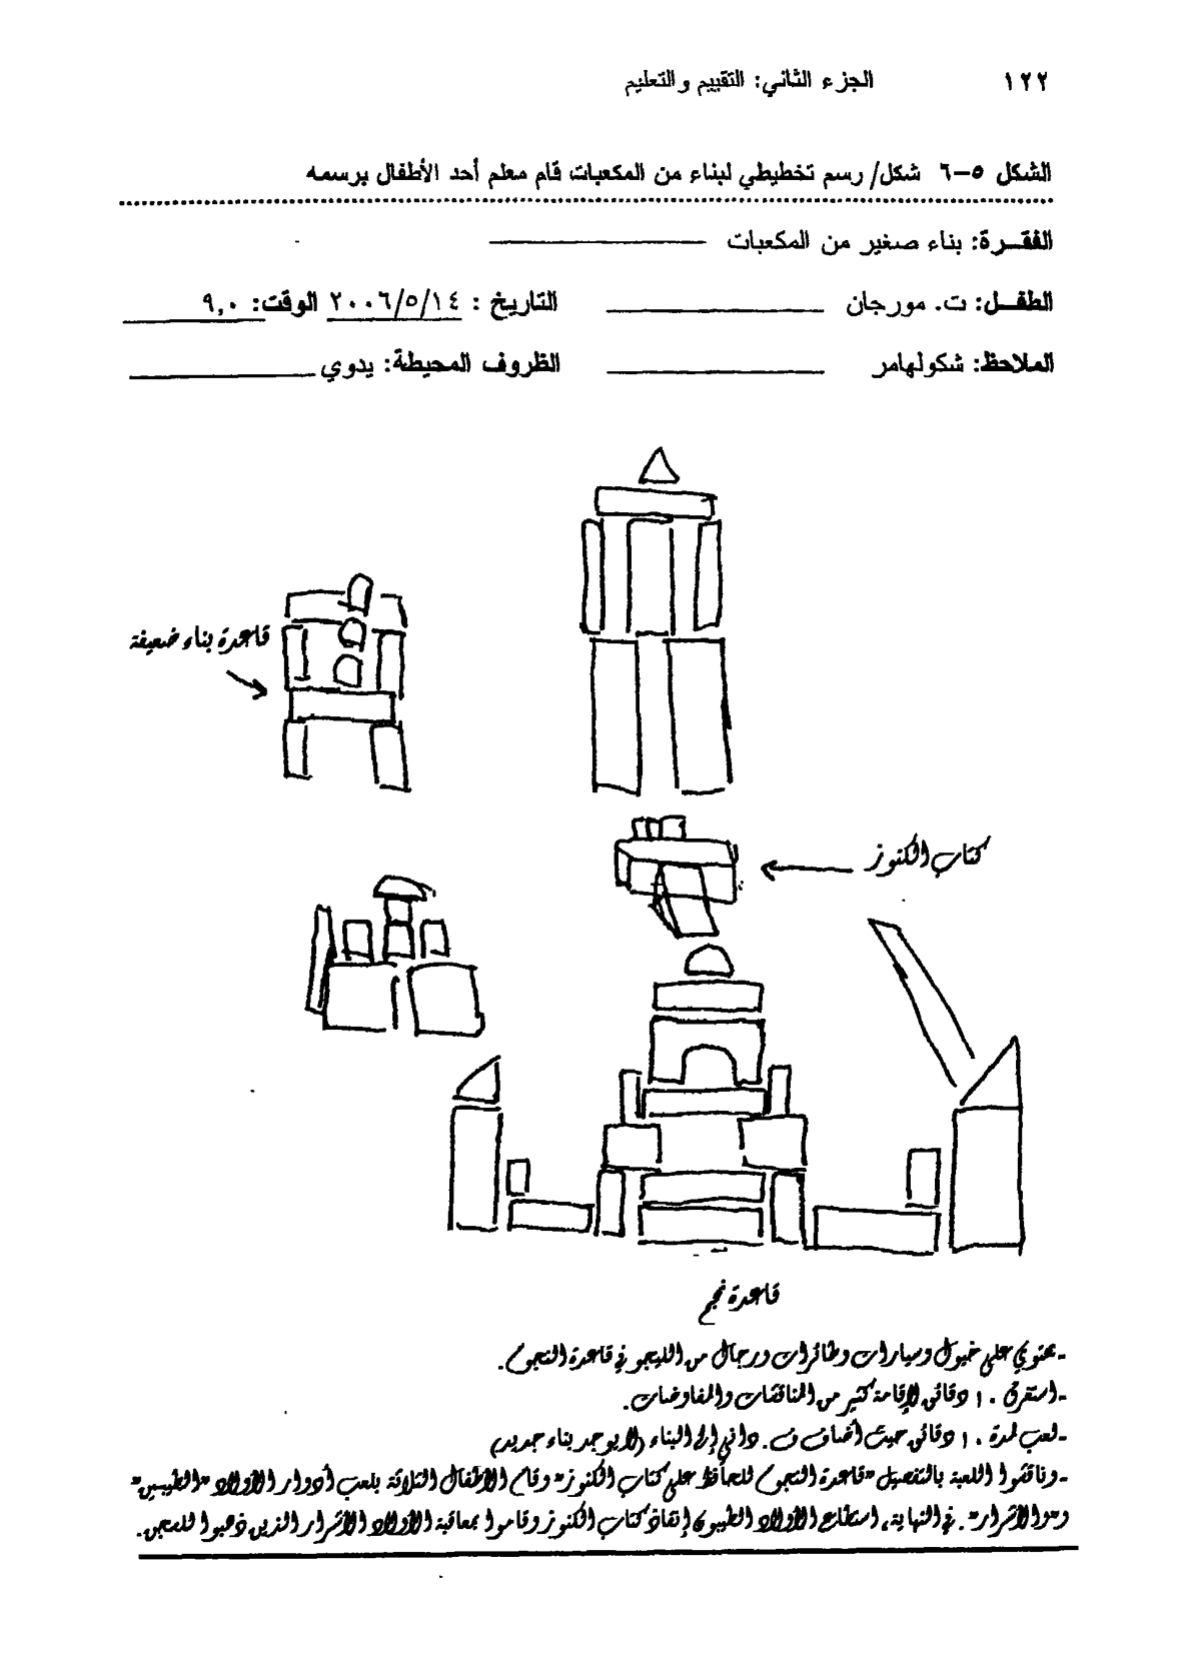 ١٢٢ الجزء الثاني: التقييم والتعليم
الشكل ٥-٦ شكل/ رسم تخطيطي لبناء من المكعبات قام معلم أحد الأطفال برسمه
الفقـرة: بناء صغير من المكعبات
الطفـل: ت. مورجان التاريخ: ٢٠٠٦/٥/١٤ الوقت: ٩,٠
الملاحظ: شكولهامر الظروف المحيطة: يدوي
قاعدة بناء ضعيفة
كتاب الكنوز
قاعدة نجم
- يحتوي على خيول وسيارات وطائرات ورجال من الليجو في قاعدة النجوم.
- استغرق ١٠ دقائق لإقامة كثير من المناقشات والمفاوضات.
- لعب لمدة ١٠ دقائق حيث أضاف ف. داني إلى البناء (لا يوجد بناء جديد)
- وناقشوا اللعبة بالتفصيل "قاعدة النجوم للحفاظ على كتاب الكنوز" وقام الأطفال الثلاثة بلعب أدوار الأولاد "الطيبين"
و"الأشرار". في النهاية، استطاع الأولاد الطيبون إنقاذ كتاب الكنوز وقاموا بمعاقبة الأولاد الأشرار الذين ذهبوا للسجن.